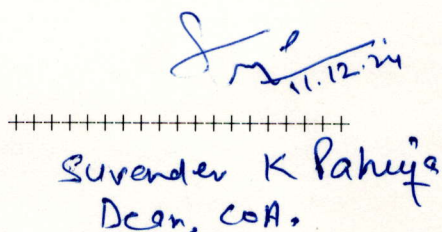 11.12.24
+++++++++++++++++++++++++++++
Surender K Pahuja
Dean, COA.